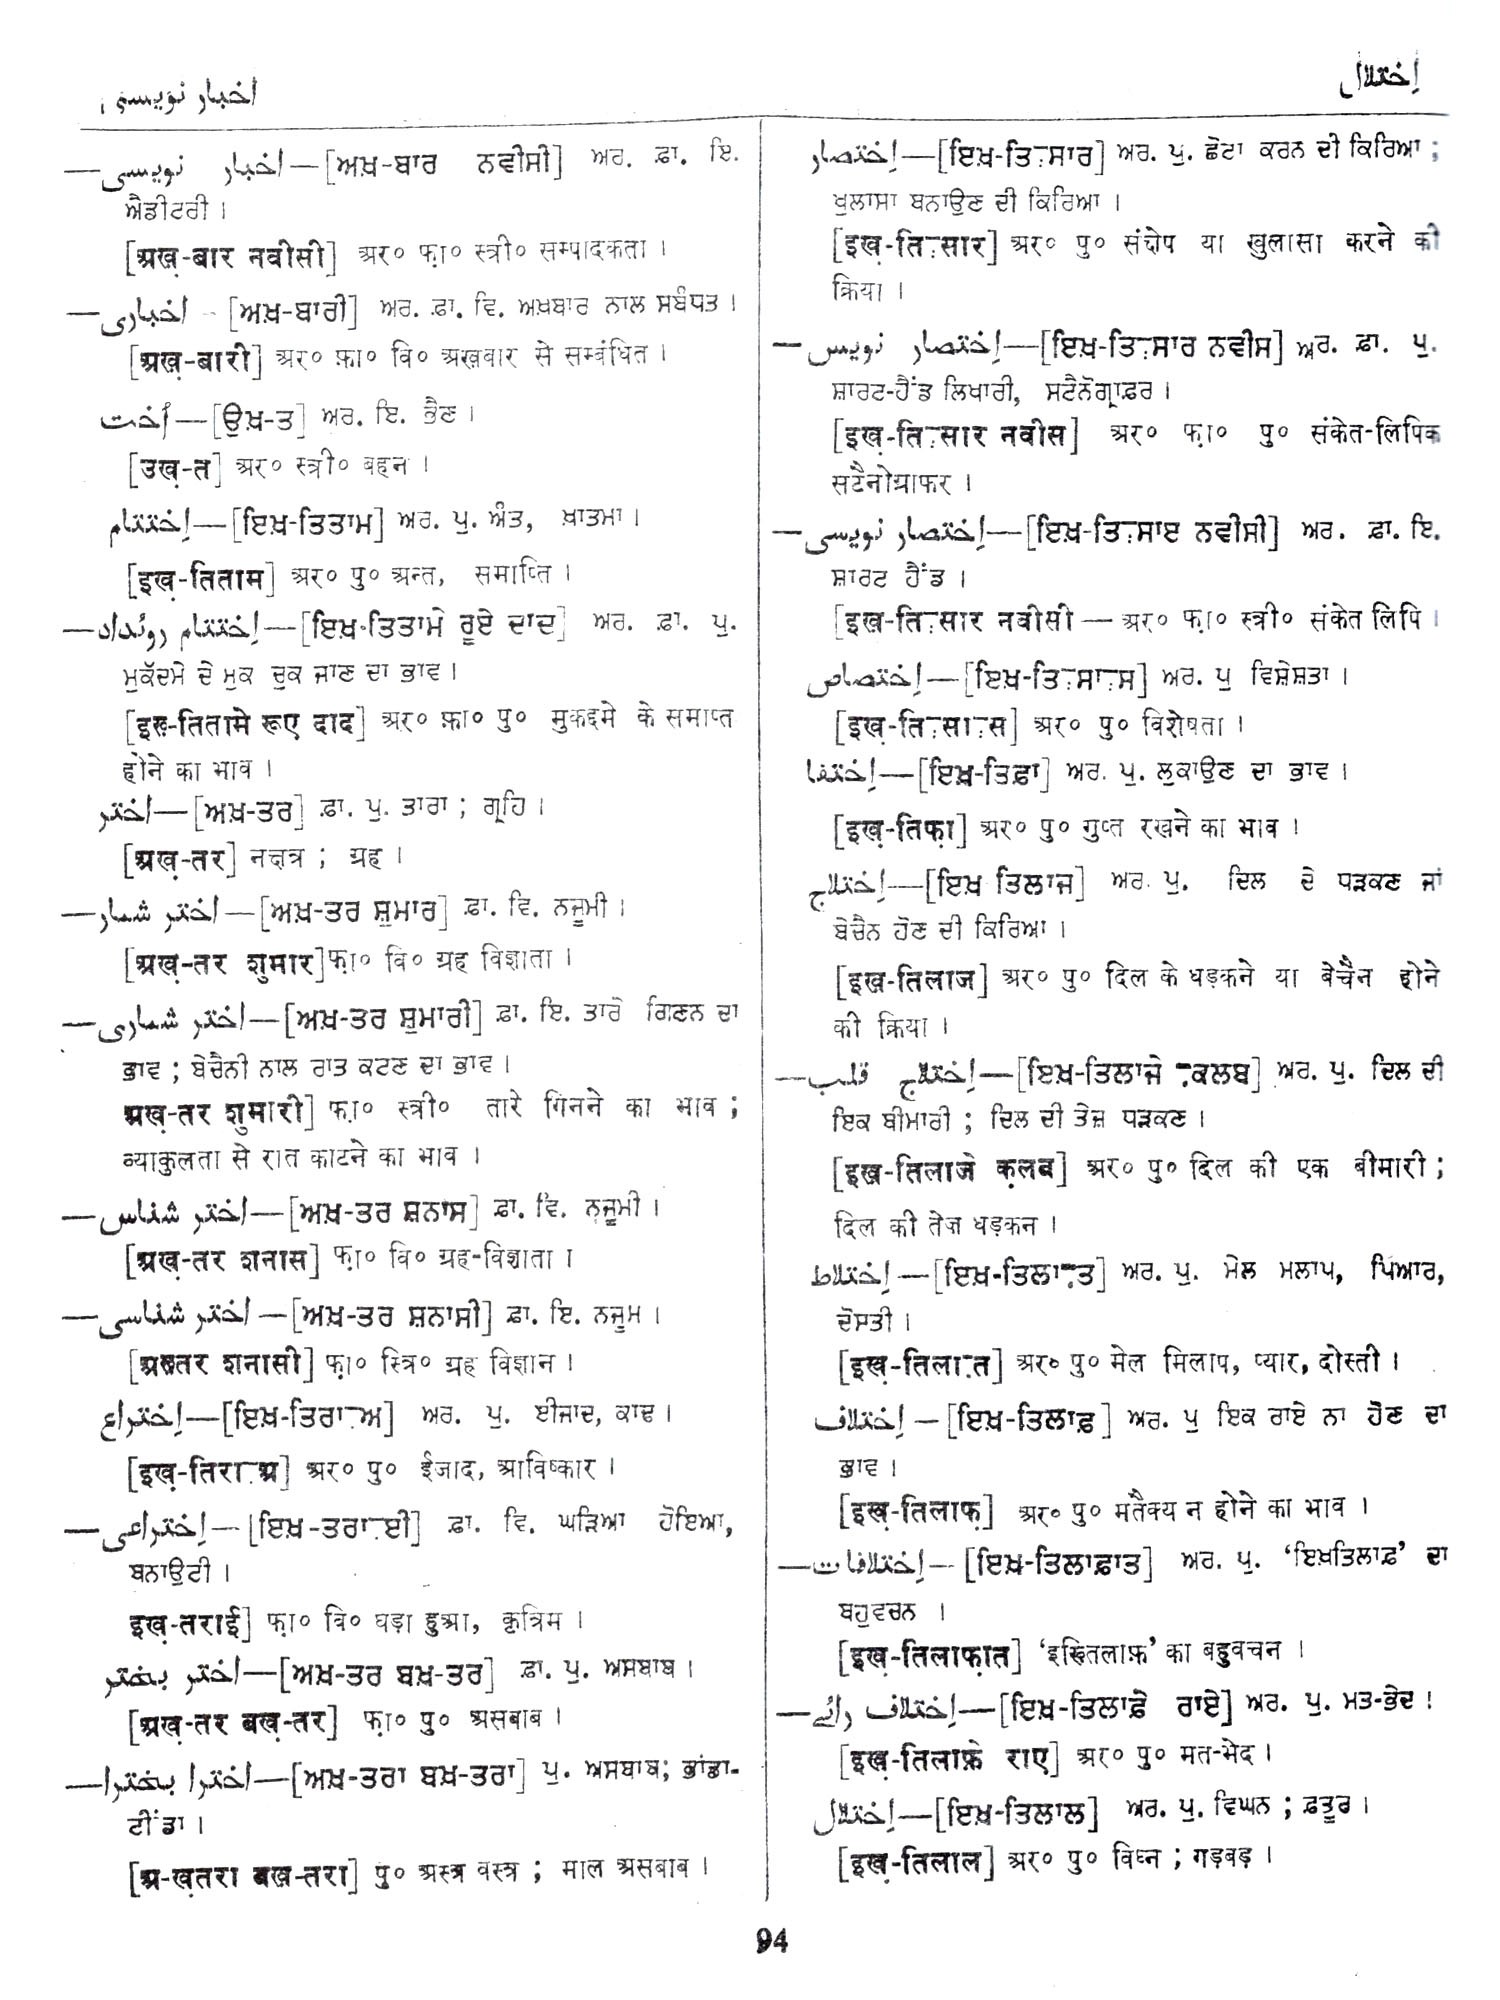 اخبار نویسی
اِختلال
—اخبار نویسی—[ਅਖ਼-ਬਾਰ ਨਵੀਸੀ] ਅਰ. ਫ਼ਾ. ਇ.
ਐਡੀਟਰੀ ।
[अख़-बार नवीसी] अर० फ़ा० स्त्री० सम्पादकता ।
—اخباری - [ਅਖ਼-ਬਾਰੀ] ਅਰ. ਫ਼ਾ. ਵਿ. ਅਖ਼ਬਾਰ ਨਾਲ ਸਬੰਧਤ ।
[अख़-बारी] अर० फ़ा० वि० अख़बार से सम्बंधित ।
اُخت—[ਉਖ਼-ਤ] ਅਰ. ਇ. ਭੈਣ ।
[उख़-त] अर० स्त्री० बहन ।
اِختتام—[ਇਖ਼-ਤਿਤਾਮ] ਅਰ. ਪੁ. ਅੰਤ, ਖ਼ਾਤਮਾ ।
[इख़-तिताम] अर० पु० अन्त, समाप्ति ।
—اِختتام روئداد—[ਇਖ਼-ਤਿਤਾਮੇ ਰੂਏ ਦਾਦ] ਅਰ. ਫ਼ਾ. ਪੁ.
ਮੁਕੱਦਮੇ ਦੇ ਮੁਕ ਚੁਕ ਜਾਣ ਦਾ ਭਾਵ ।
[इख़-तितामे रूए दाद] अर० फ़ा० पु० मुकद्दमे के समाप्त
होने का भाव ।
اختر—[ਅਖ਼-ਤਰ] ਫ਼ਾ. ਪੁ. ਤਾਰਾ ; ਗ੍ਰਹਿ ।
[अख़-तर] नक्षत्र ; ग्रह ।
—اختر شمار—[ਅਖ਼-ਤਰ ਸ਼ੁਮਾਰ] ਫ਼ਾ. ਵਿ. ਨਜੂਮੀ ।
[अख़-तर शुमार] फ़ा० वि० ग्रह विज्ञाता ।
—اختر شماری—[ਅਖ਼-ਤਰ ਸ਼ੁਮਾਰੀ] ਫ਼ਾ. ਇ. ਤਾਰੇ ਗਿਣਨ ਦਾ
ਭਾਵ ; ਬੇਚੈਨੀ ਨਾਲ ਰਾਤ ਕਟਣ ਦਾ ਭਾਵ ।
अख़-तर शुमारी] फ़ा० स्त्री० तारे गिनने का भाव ;
व्याकुलता से रात काटने का भाव ।
—اختر شناس—[ਅਖ਼-ਤਰ ਸ਼ਨਾਸ] ਫ਼ਾ. ਵਿ. ਨਜੂਮੀ ।
[अख़-तर शनास] फ़ा० वि० ग्रह-विज्ञाता ।
—اختر شناسی—[ਅਖ਼-ਤਰ ਸ਼ਨਾਸੀ] ਫ਼ਾ. ਇ. ਨਜੂਮ ।
[अख़तर शनासी] फ़ा० स्त्रि० ग्रह विज्ञान ।
اِختراع—[ਇਖ਼-ਤਿਰਾ-ਅ] ਅਰ. ਪੁ. ਈਜਾਦ, ਕਾਢ ।
[इख़-तिरा-अ] अर० पु० ईजाद, आविष्कार ।
—اِختراعی—[ਇਖ਼-ਤਰਾ-ਈ] ਫ਼ਾ. ਵਿ. ਘੜਿਆ ਹੋਇਆ,
ਬਨਾਉਟੀ ।
इख़-तराई] फ़ा० वि० घड़ा हुआ, कृत्रिम ।
اختر بختر—[ਅਖ਼-ਤਰ ਬਖ਼-ਤਰ] ਫ਼ਾ. ਪੁ. ਅਸਬਾਬ ।
[अख़-तर बख़-तर] फ़ा० पु० असबाब ।
—اخترا بخترا—[ਅਖ਼-ਤਰਾ ਬਖ਼-ਤਰਾ] ਪੁ. ਅਸਬਾਬ; ਭਾਂਡਾ-
ਟੀਂਡਾ ।
[अ-ख़तरा बख़-तरा] पु० अस्त्र वस्त्र ; माल असबाब ।
اِختصار—[ਇਖ਼-ਤਿ-ਸਾਰ] ਅਰ. ਪੁ. ਛੋਟਾ ਕਰਨ ਦੀ ਕਿਰਿਆ ;
ਖੁਲਾਸਾ ਬਨਾਉਣ ਦੀ ਕਿਰਿਆ ।
[इख़-ति-सार] अर० पु० संक्षेप या खुलासा करने की
क्रिया ।
—اِختصار نویس—[ਇਖ਼-ਤਿ-ਸਾਰ ਨਵੀਸ] ਅਰ. ਫ਼ਾ. ਪੁ.
ਸ਼ਾਰਟ-ਹੈਂਡ ਲਿਖਾਰੀ, ਸਟੈਨੋਗ੍ਰਾਫ਼ਰ ।
[इख़-ति-सार नवीस] अर० फ़ा० पु० संकेत-लिपिक
सटैनोग्राफर ।
—اِختصار نویسی—[ਇਖ਼-ਤਿ-ਸਾਏ ਨਵੀਸੀ] ਅਰ. ਫ਼ਾ. ਇ.
ਸ਼ਾਰਟ ਹੈਂਡ ।
[इख़-ति-सार नवीसी — अर० फ़ा० स्त्री० संकेत लिपि ।
اِختصاص—[ਇਖ਼-ਤਿ-ਸਾ-ਸ] ਅਰ. ਪੁ ਵਿਸ਼ੇਸ਼ਤਾ ।
[इख़-ति-सा-स] अर० पु० विशेषता ।
اِختفا—[ਇਖ਼-ਤਿਫ਼ਾ] ਅਰ. ਪੁ. ਲੁਕਾਉਣ ਦਾ ਭਾਵ ।
[इख़-तिफ़ा] अर० पु० गुप्त रखने का भाव ।
اِختلاج—[ਇਖ਼ ਤਿਲਾਜ] ਅਰ. ਪੁ. ਦਿਲ ਦੇ ਧੜਕਣ ਜਾਂ
ਬੇਚੈਨ ਹੋਣ ਦੀ ਕਿਰਿਆ ।
[इख़-तिलाज] अर० पु० दिल के धड़कने या बेचैन होने
की क्रिया ।
—اِختلاج قلب—[ਇਖ਼-ਤਿਲਾਜੇ ਕਲਬ] ਅਰ. ਪੁ. ਦਿਲ ਦੀ
ਇਕ ਬੀਮਾਰੀ ; ਦਿਲ ਦੀ ਤੇਜ਼ ਧੜਕਣ ।
[इख़-तिलाजे क़लब] अर० पु० दिल की एक बीमारी ;
दिल की तेज़ धड़कन ।
اِختلاط—[ਇਖ਼-ਤਿਲਾ-ਤ] ਅਰ. ਪੁ. ਮੇਲ ਮਲਾਪ, ਪਿਆਰ,
ਦੋਸਤੀ ।
[इख़-तिला-त] अर० पु० मेल मिलाप, प्यार, दोस्ती ।
اِختلاف—[ਇਖ਼-ਤਿਲਾਫ਼] ਅਰ. ਪੁ ਇਕ ਰਾਏ ਨਾ ਹੋਣ ਦਾ
ਭਾਵ ।
[इख़-तिलाफ़] अर० पु० मतैक्य न होने का भाव ।
—اِختلافات—[ਇਖ਼-ਤਿਲਾਫ਼ਾਤ] ਅਰ. ਪੁ. ‘ਇਖ਼ਤਿਲਾਫ਼’ ਦਾ
ਬਹੁਵਚਨ ।
[इख़-तिलाफ़ात] ‘इख़्तिलाफ़’ का बहुवचन ।
—اِختلاف رائے—[ਇਖ਼-ਤਿਲਾਫ਼ੇ ਰਾਏ] ਅਰ. ਪੁ. ਮਤ-ਭੇਦ ।
[इख़-तिलाफ़े राए] अर० पु० मत-भेद ।
اِختلال—[ਇਖ਼-ਤਿਲਾਲ] ਅਰ. ਪੁ. ਵਿਘਨ ; ਫ਼ਤੂਰ ।
[इख़-तिलाल] अर० पु० विघ्न ; गड़बड़ ।
94